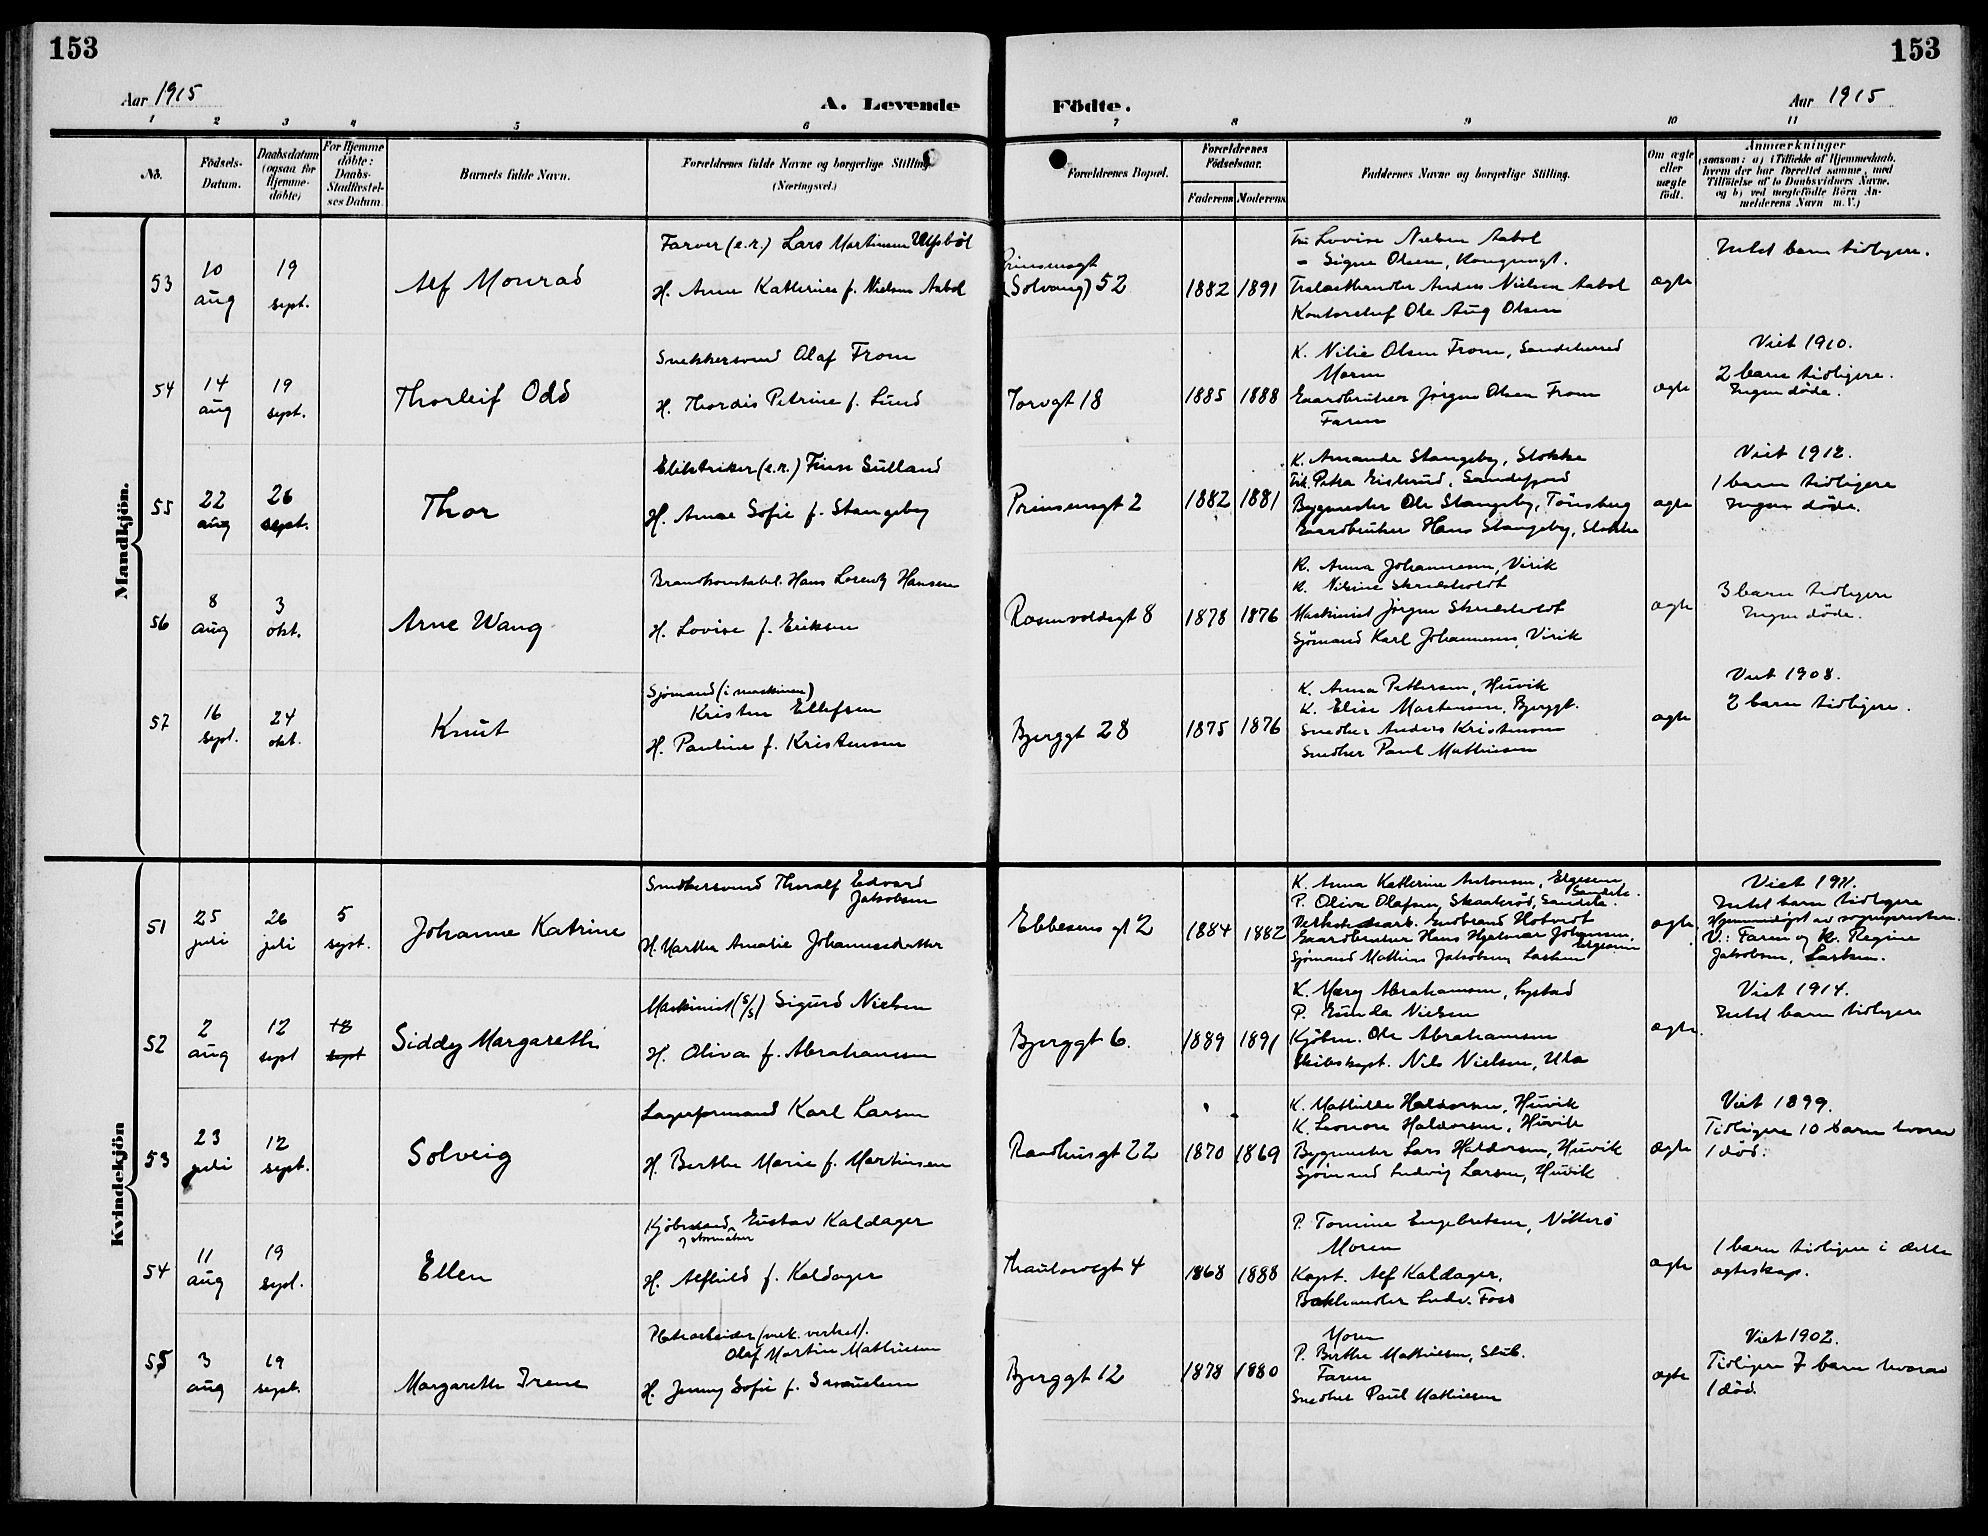 153
153
Aar 1915
A. Levende
Födte.
Aar 1915
1 2 3 4 5 6 7 8 9 10 11
No.
Födsels-
Datum.
Daabsdatum
(ogsaa for
Hjemme-
döbte)
For Hjemme
döbte:
Daabs-
Stadfæstel-
ses Datum.
Barnets fulde Navn.
Forældrenes fulde Navne og borgerlige Stilling
(Næringsvei.)
Forældrenes Bopæl.
Forældrenes
Födselsaar.
Faderens Moderens
Faddernes Navne og borgerlige Stilling.
Om ægte
eller
uægte
födt.
Anmærkninger
(saasom: a) i Tilfælde af Hjemmedaab,
hvem der har forrettet samme, med
Tilföielse af to Daabsvidners Navne,
og b) ved uægtefödte Börn An-
melderens Navn m. V.)
Mandkjön.
53
10 aug
19 sept.
Alf Monrad
Farver (e.r.) Lars Martinsen Ulfsböl
H. Anne Katherine f. Nielsen Aabol
Prinsensgt
(Solvang) 52
1882 1891
Fru Lovise Nielsen Aabol
" Signe Olsen, Kongensgt.
Trælasthandler Anders Nielsen Aabol
Kontorchef Ole Aug Olsen
ægte
Intet barn tidligere.
54
14 aug
19 sept.
Thorleif Odd
Snekkersvend Olaf From
H. Thordis Petrine f. Lund
Torvgt 18
1885 1888
K. Nilie Olsen From, Sandeherred
Moren
Gaardbruker Jørgen Olsen From
Faren
ægte
Viet 1910.
2 barn tidligere.
Ingen døde.
55
22 aug
26 sept.
Thor
Elektriker (e.r.) Finn Sulland
H. Anne Sofie f. Stangeby
Prinsensgt 2
1882 1881
K. Amanda Stangeby, Stokke
Frk. Petra Gislerud, Sandefjord
Bygmester Ole Stangeby, Tönsberg
Gaardbruker Hans Stangeby, Stokke
ægte
Viet 1912.
1 barn tidligere
Ingen døde.
56
8 aug
3 okt.
Arne Wang
Brandkonstabel Hans Lorentz Hansen
H. Lovise f. Eriksen
Rosenvoldsgt 8
1878 1876
K. Anna Johannesen, Virik
K. Nilsine Skredsholdt
Maskinist Jörgen Skredsholdt
Sjømand Karl Johannesen, Virik
ægte
3 barn tidligere
Ingen døde.
57
16 sept.
24 okt.
Knut
Sjömand (i maskinen)
Kristen Ellefsen
H. Pauline f. Kristensen
Bjerggt 28
1875 1876
K. Anna Pettersen, Huvik
K. Elise Martinsen, Bjerggt.
Snedker Anders Kristensen
Snedker Paul Mathiesen
ægte
Viet 1908.
2 barn tidligere.
Kvindekjön
51
25 juli
26 juli
5 sept.
Johanne Katrine
Snedkersvend Thoralf Edvard
Jakobsen
H. Marthe Amalie Johannesdatter
Ebbesens gt 2
1884 1882
K. Anna Katherine Antonsen,
P. Oliva Olafsen, Skaaterød,
Gudbrand Hotvedt
Gaardbruker Hans Hjalmar Johansen
Sjømand Mathias Jakobsen
ægte
Viet 1911.
Intet barn tidligere
Hjemmedöpt av sognepresten.
V.: Faren og K. Regine
Jakobsen,
52
2 aug
12 sept
18 sept
Siddy Margarethe
Maskinist (s/s) Sigurd Nielsen
H. Oliva f. Abrahamsen
Bjerggt 6.
1889 1891
K. Mary Abrahamsen, Lystad
P. Gunda Nielsen
Kjöbm. Ole Abrahamsen
Skibskapt. Nils Nielsen, Ula
ægte.
Viet 1914.
Intet barn tidligere
53
23 juli
12 sept.
Solveig
Lagerformand Karl Larsen
H. Berthe Marie f. Martinsen
Raadhusgt 22
1870 1869
K. Mathilde Haldorsen, Huvik
K. Leonore Haldorsen, Huvik
Bygmester Lars Haldorsen, Huvik
Sjömand Ludvig Larsen, Huvik
ægte
Viet 1899.
Tidligere 10 barn hvorav
1 død.
54
11 aug
19 sept.
Ellen
Kjöbmand Gustav Kaldager
H. Alfhild f. Kaldager
Thaulowsgt 4
1868 1888
P. Tomine Engebretsen, Nötterö
Moren
Kapt. Alf Kaldager,
Bokhandler Ludv. Foss
ægte
1 barn tidligere i dette
ægteskap.
55
3 aug
19 sept.
Margarethe Irene
Platearbeider (mek. verksted).
Olaf Martin Mathiesen
H. Jenny Sofie f. Samuelsen
Bjerggt 12
1878 1880
Moren
P. Berthe Mathiesen, Stub.
Faren
Snedker Paul Mathiesen
ægte
Viet 1902.
Tidligere 7 barn hvorav
1 død.